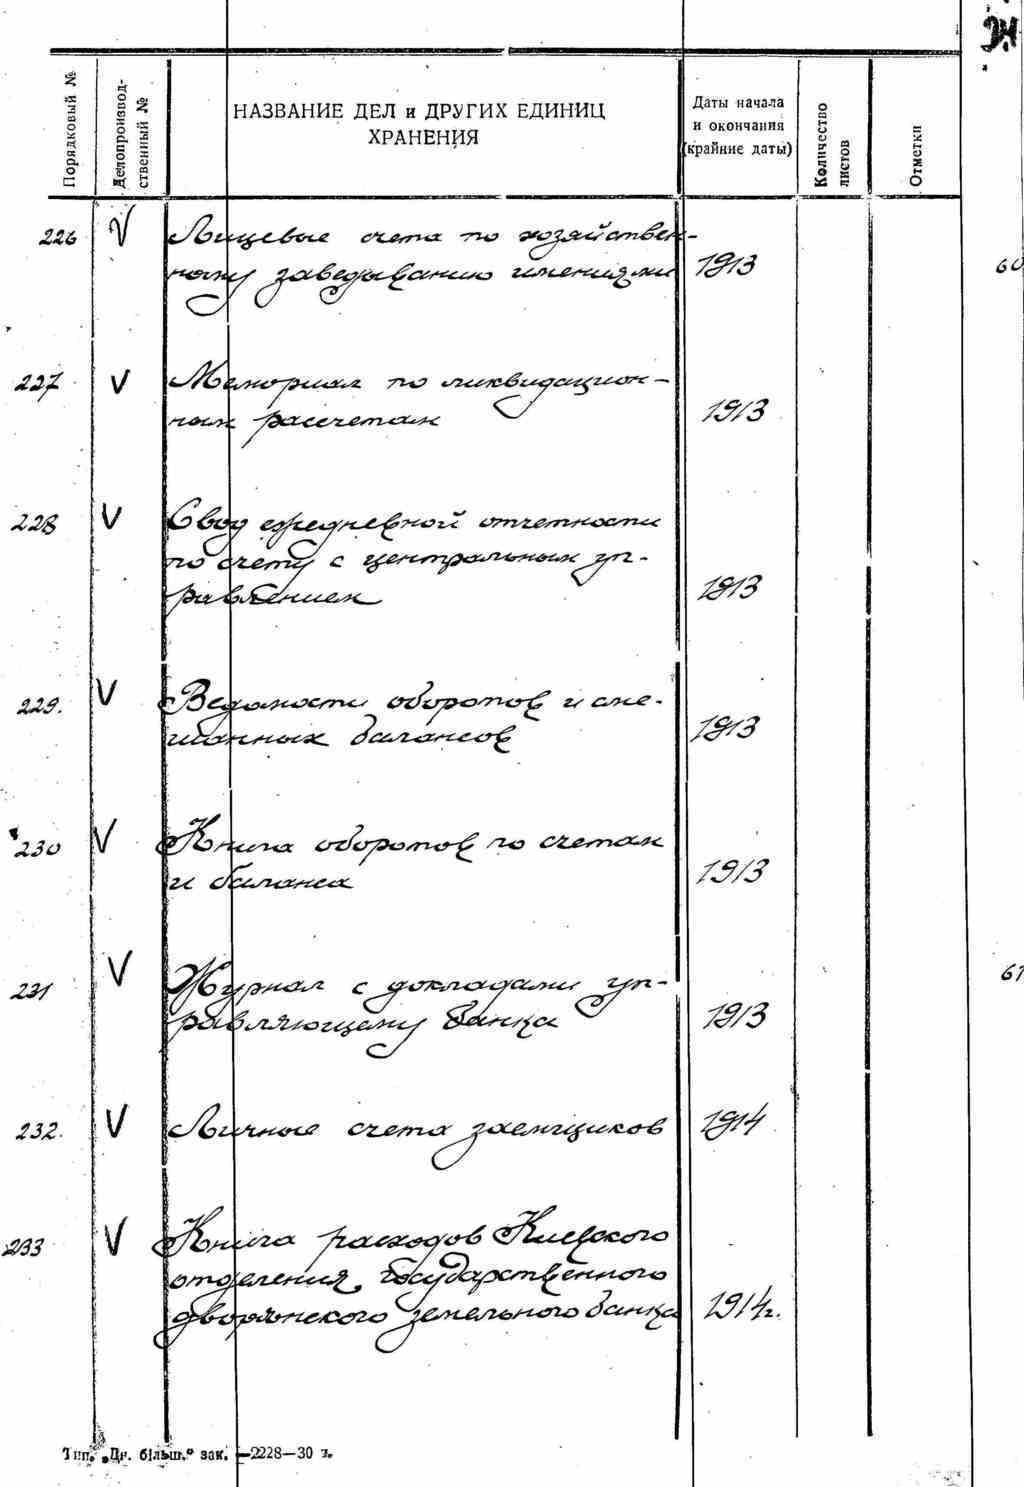 24
Порядковый №
Делопроизвод-
ственный №
НАЗВАНИЕ ДЕЛ и ДРУГИХ ЕДИНИЦ
ХРАНЕНИЯ
Даты начала
и окончания
(крайние даты)
Количество
листов
Отметки
226 V Лицевые счета по хозяйствен-
ному заведыванию имениями 1913
60
227 V Мемориал по ликвидацион-
ным рассчетам 1913
228 V Свод ежедневной отчетности
по счету с центральным уп-
равлением 1913
229. V Ведомости оборотов и сме-
шанных балансов 1913
230 V Книга оборотов по счетам
и баланса 1913
231 V Журнал с докладами уп-
равляющему банка 1913
61
232. V Личные счета заемщиков 1914
233 V Книга расходов Киевского
отделения Государственного
дворянского земельного банка 1914г.
Тип. „Дн. більш." зак. —2228—30 т.